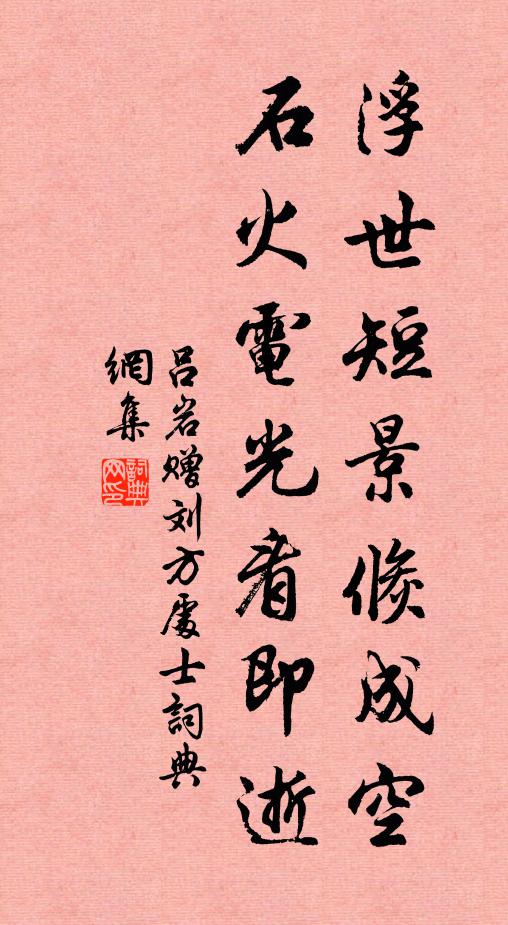 浮世短景倏成空
石火電光看即逝
吕岩赠刘方處士詞典
網集
詞典网印